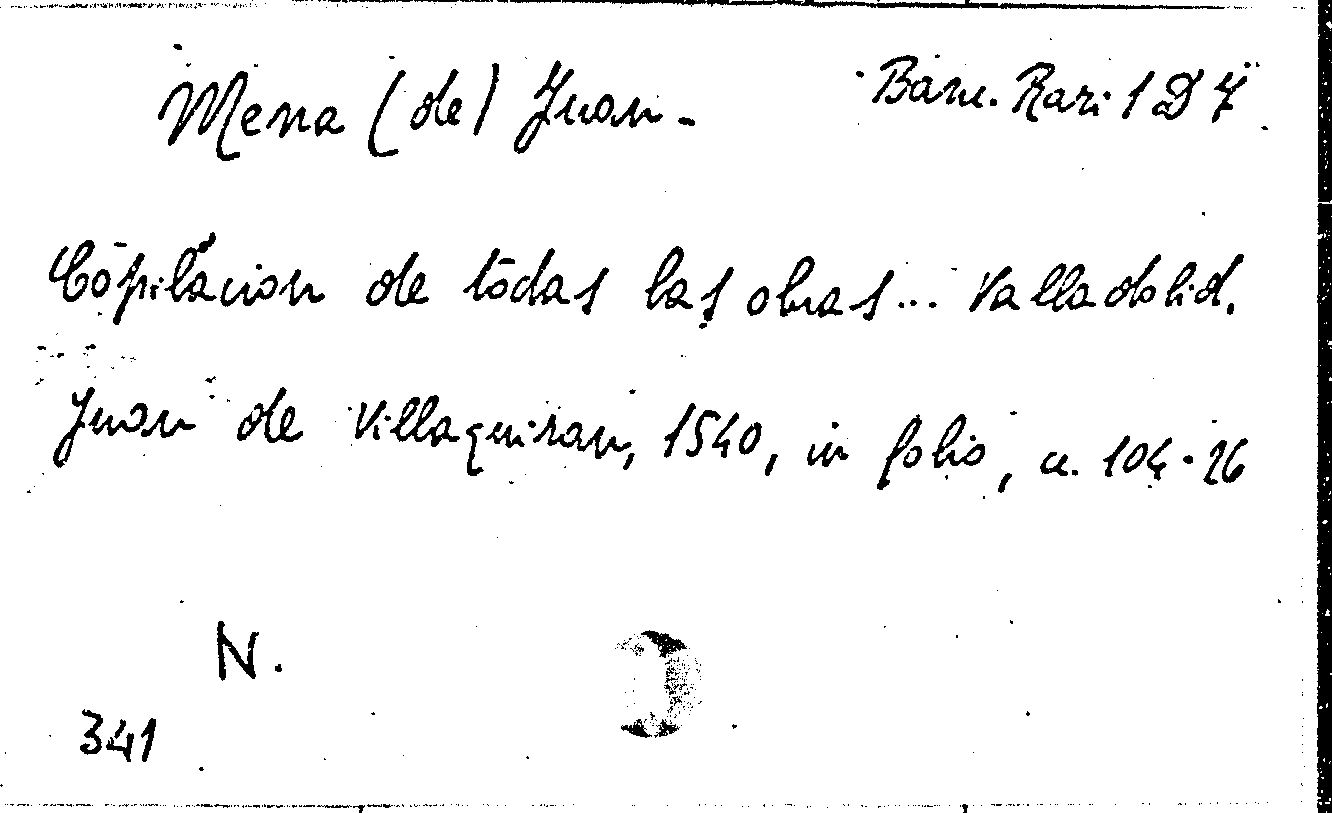 Mena (de) Juan. Banc. Rari 1 D 7
Cōpilacion de todas las obras... Valladolid.
Juan de Villaquiran, 1540, in folio, c. 104-26
N.
341